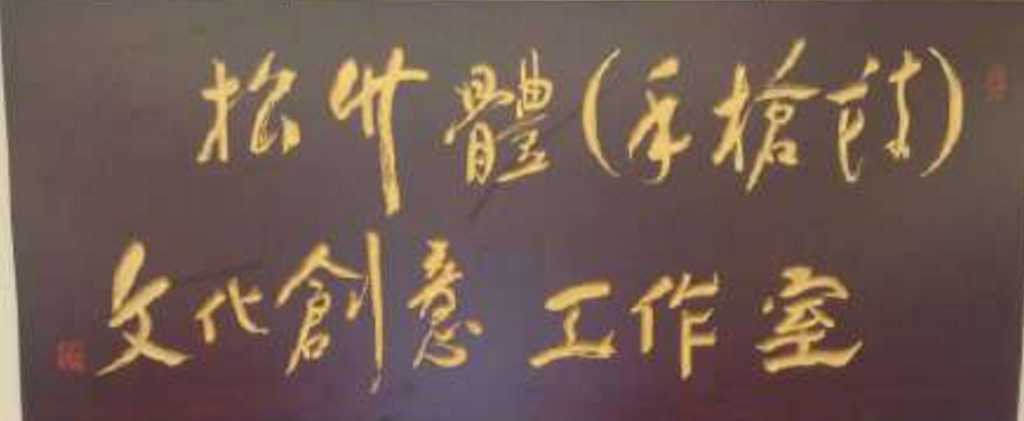 松竹體(手槍詩)
文化創意工作室